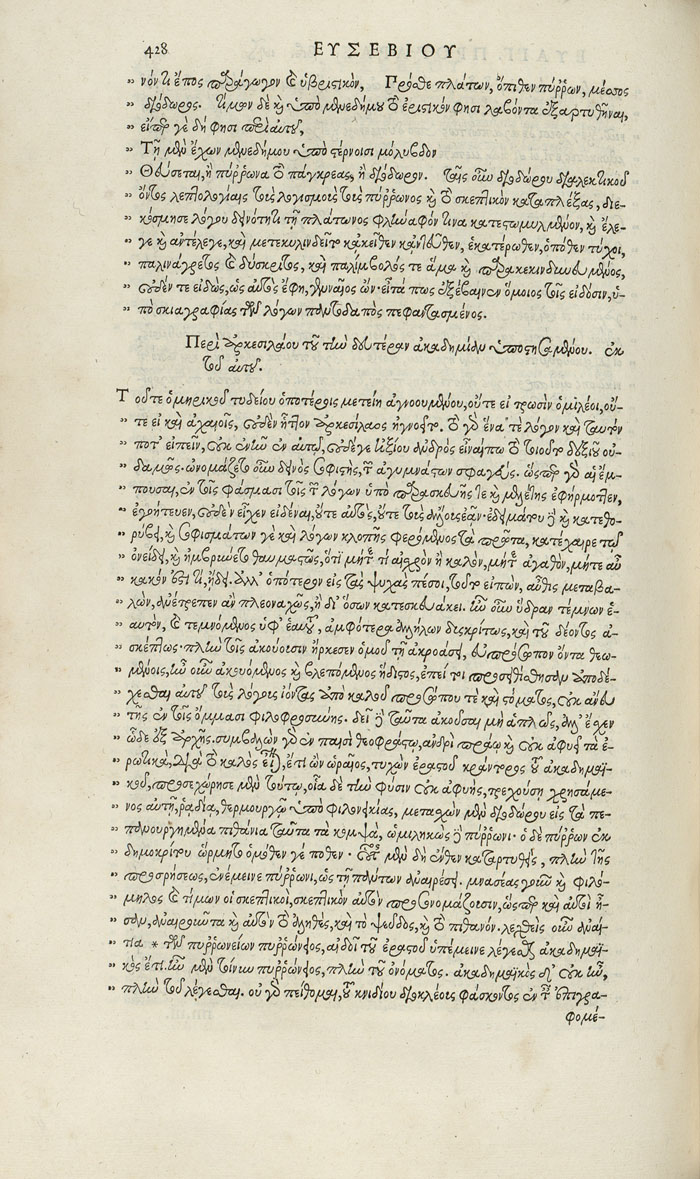 428 ΕΥΣΕΒΙΟΥ
„ νόν τι ἔπος παράγωγον καὶ ὑβριστικὸν, Πρόσθε πλάτων, ὄπιθεν πύῤῥων, μέσσος
„ διόδωρος. τίμων δὲ καὶ ὑπὸ μενεδήμου τὸ ἐριστικόν φησι λαβόντα ἐξαρτυθῆναι,
„ εἴπερ γὲ δή φησι περὶ αὐτοῦ,
„ Τῆ μὲν ἔχων μενεδήμου ὑπὸ στέρνοισι μόλυβδον
„ Θεύσεται, ἢ πύῤῥωνα τὸ πάγκρεας, ἢ διόδωρον. ταῖς οὖν διοδώρου διαλεκτικοῦ
„ ὄντος λεπτολογίαις τοὺς λογισμοὺς τοὺς πύῤῥωνος καὶ τὸ σκεπτικὸν καταπλέξας, διε-
„ κόσμησε λόγου δεινότητι τῆ πλάτωνος φλύαρόν τινα κατεστωμυλμένον, καὶ ἔλε-
„ γε καὶ ἀντέλεγε, καὶ μετεκυλινδεῖτο κἀκεῖθεν κἀντεῦθεν, ἑκατέρωθεν, ὁπόθεν τύχοι,
„ παλινάγρετος καὶ δύσκριτος, καὶ παλίμβολός τε ἅμα καὶ παρακεκινδυνευμένος,
„ οὐδέν τε εἰδὼς, ὡς αὐτὸς ἔφη, γενναῖος ὤν· εἶτά πως ἐξέβαινεν ὅμοιος τοῖς εἰδόσιν, ὑ-
„ πὸ σκιαγραφίας τῶν λόγων παντοδαπὸς πεφαντασμένος.
Περὶ ἀρκεσιλάου τοῦ τὴν δευτέραν ἀκαδημίαν ὑποστησαμένου. ἐκ
τοῦ αὐτοῦ.
Τ οῦτε ὁμηρικοῦ τυδείου ὁποτέροις μετείη ἀγνοουμένου, οὔτε εἰ τρωσὶν ὁμιλέοι, οὔ-
„ τε εἰ καὶ ἀχαιοῖς, οὐδὲν ἧττον ἀρκεσίλαος ἠγνοεῖτο. τὸ γὰρ ἕνα τὲ λόγον καὶ ταυτόν
„ ποτ' εἰπεῖν, οὐκ ἐνῆν ἐν αὐτῷ, οὐδέ γε ἠξίου ἀνδρὸς εἶναί πω τὸ τοιοῦτο δεξιοῦ οὐ-
„ δαμῶς. ὠνομάζετο οὖν δεινὸς σοφιστὴς, τῶν ἀγυμνάστων σφαγεύς. ὥσπερ γὰρ αἱ ἔμ-
„ πουσαι, ἐν τοῖς φάσμασι τοῖς τῶν λόγων ὑπὸ παρασκευῆς τε καὶ μελέτης ἐφήρμοττεν,
„ ἐγοήτευεν, οὐδὲν εἶχεν εἰδέναι, οὔτε αὐτὸς, οὔτε τοὺς ἄλλους ἐᾶν· ἐδειμάτου δὲ καὶ κατεθο-
„ ρύβει, καὶ σοφισμάτων γὲ καὶ λόγων κλοπῆς φερόμενος τὰ πρῶτα, κατέχαιρε τῷ
„ ὀνείδει, καὶ ἡμβρυώετο θαυμαστῶς, ὅτι μήτε τί αἰσχρὸν ἢ καλὸν, μήτε ἀγαθὸν, μήτε αὖ
„ κακόν ἐστι τι, ᾔδει. ἀλλ' ὁπότερον εἰς τὰς ψυχὰς πέσοι, τοῦτο εἰπὼν, αὖθις μεταβα-
„ λὼν, ἀνέτρεπεν ἂν πλεοναχῶς, ἢ δι' ὅσων κατεσκευάκει. ἦν οὖν ὕδραν τέμνων ἑ-
„ αυτὸν, καὶ τεμνόμενος ὑφ' ἑαυτοῦ, ἀμφότερα ἀλλήλων δυσκρίτως, καὶ τοῦ δέοντος ἀ-
„ σκέπτως· πλὴν τοῖς ἀκούουσιν ἤρκεσεν ὁμοῦ τῆ ἀκροάσει, εὐπρόσωπον ὄντα θεω-
„ μένοις, ἦν οὖν ἀκουόμενος καὶ βλεπόμενος ἥδιστος, ἐπεί τοι προσειθίσθησαν ἀποδέ-
„ χεσθαι αὐτοῦ τοὺς λόγους ἰόντας ἀπὸ καλοῦ προσώπου τὲ καὶ στόματος, οὐκ ἄνευ
„ τῆς ἐν τοῖς ὄμμασι φιλοφροσύνης. δεῖ δὲ ταῦτα ἀκοῦσαι μὴ ἁπλῶς, ἀλλ' ἔσχεν
„ ὧδε ἐξ ἀρχῆς. συμβαλὼν γὰρ ἐν παισὶ θεοφράστῳ, ἀνδρὶ πράῳ καὶ οὐκ ἀφυεῖ τὰ ἐ-
„ ρωτικὰ, διὰ τὸ καλὸς εἶναι, ἔτι ὢν ὡραῖος, τυχὼν ἐραστοῦ κράντορος τοῦ ἀκαδημαϊ-
„ κοῦ, προσεχώρησε μὲν τούτῳ, οἷα δὲ τὴν φύσιν οὐκ ἀφυὴς, τρεχούσῃ χρησάμε-
„ νος αὐτῆ, ῥᾳδία, θερμουργῷ ὑπὸ φιλονεικίας, μετασχὼν μὲν διοδώρου εἰς τὰ πε-
„ πανουργημένα πιθάνια ταῦτα τὰ κομψὰ, ὡμιληκὼς δὲ πύῤῥωνι· ὁ δὲ πύῤῥων ἐκ
„ δημοκρίτου ὥρμητο ὁπόθεν γέ ποθεν· οὗτος μὲν δὴ ἔνθεν καταρτυθεὶς, πλὴν τῆς
„ προσρήσεως, ἐνέμεινε πύῤῥωνι, ὡς τῆ πάντων ἀναιρέσει. μνασέας γοῦν καὶ φιλό-
„ μηλος καὶ τίμων οἱ σκεπτικοὶ, σκεπτικὸν αὐτὸν προσονομάζουσιν, ὥσπερ καὶ αὐτοὶ ἦ-
„ σαν, ἀναιροῦντα καὶ αὐτὸν τὸ ἀληθὲς, καὶ τὸ ψεῦδος, καὶ τὸ πιθανόν. λεχθεὶς οὖν ἂν αἰ-
„ τία * τῶν πυῤῥωνείων πυῤῥώνειος, αἰδοῖ τοῦ ἐραστοῦ ὑπέμεινε λέγεσθαι ἀκαδημαϊ-
„ κὸς ἔτι. ἦν μὲν τοίνυν πυῤῥώνειος, πλὴν τοῦ ὀνόματος. ἀκαδημαϊκὸς δ' οὐκ ἦν,
„ πλὴν τοῦ λέγεσθαι. οὐ γὰρ πείθομαι, τοῦ κνιδίου διοκλέους φάσκοντος ἐν ταῖς ἐπιγρα-
φομέ-